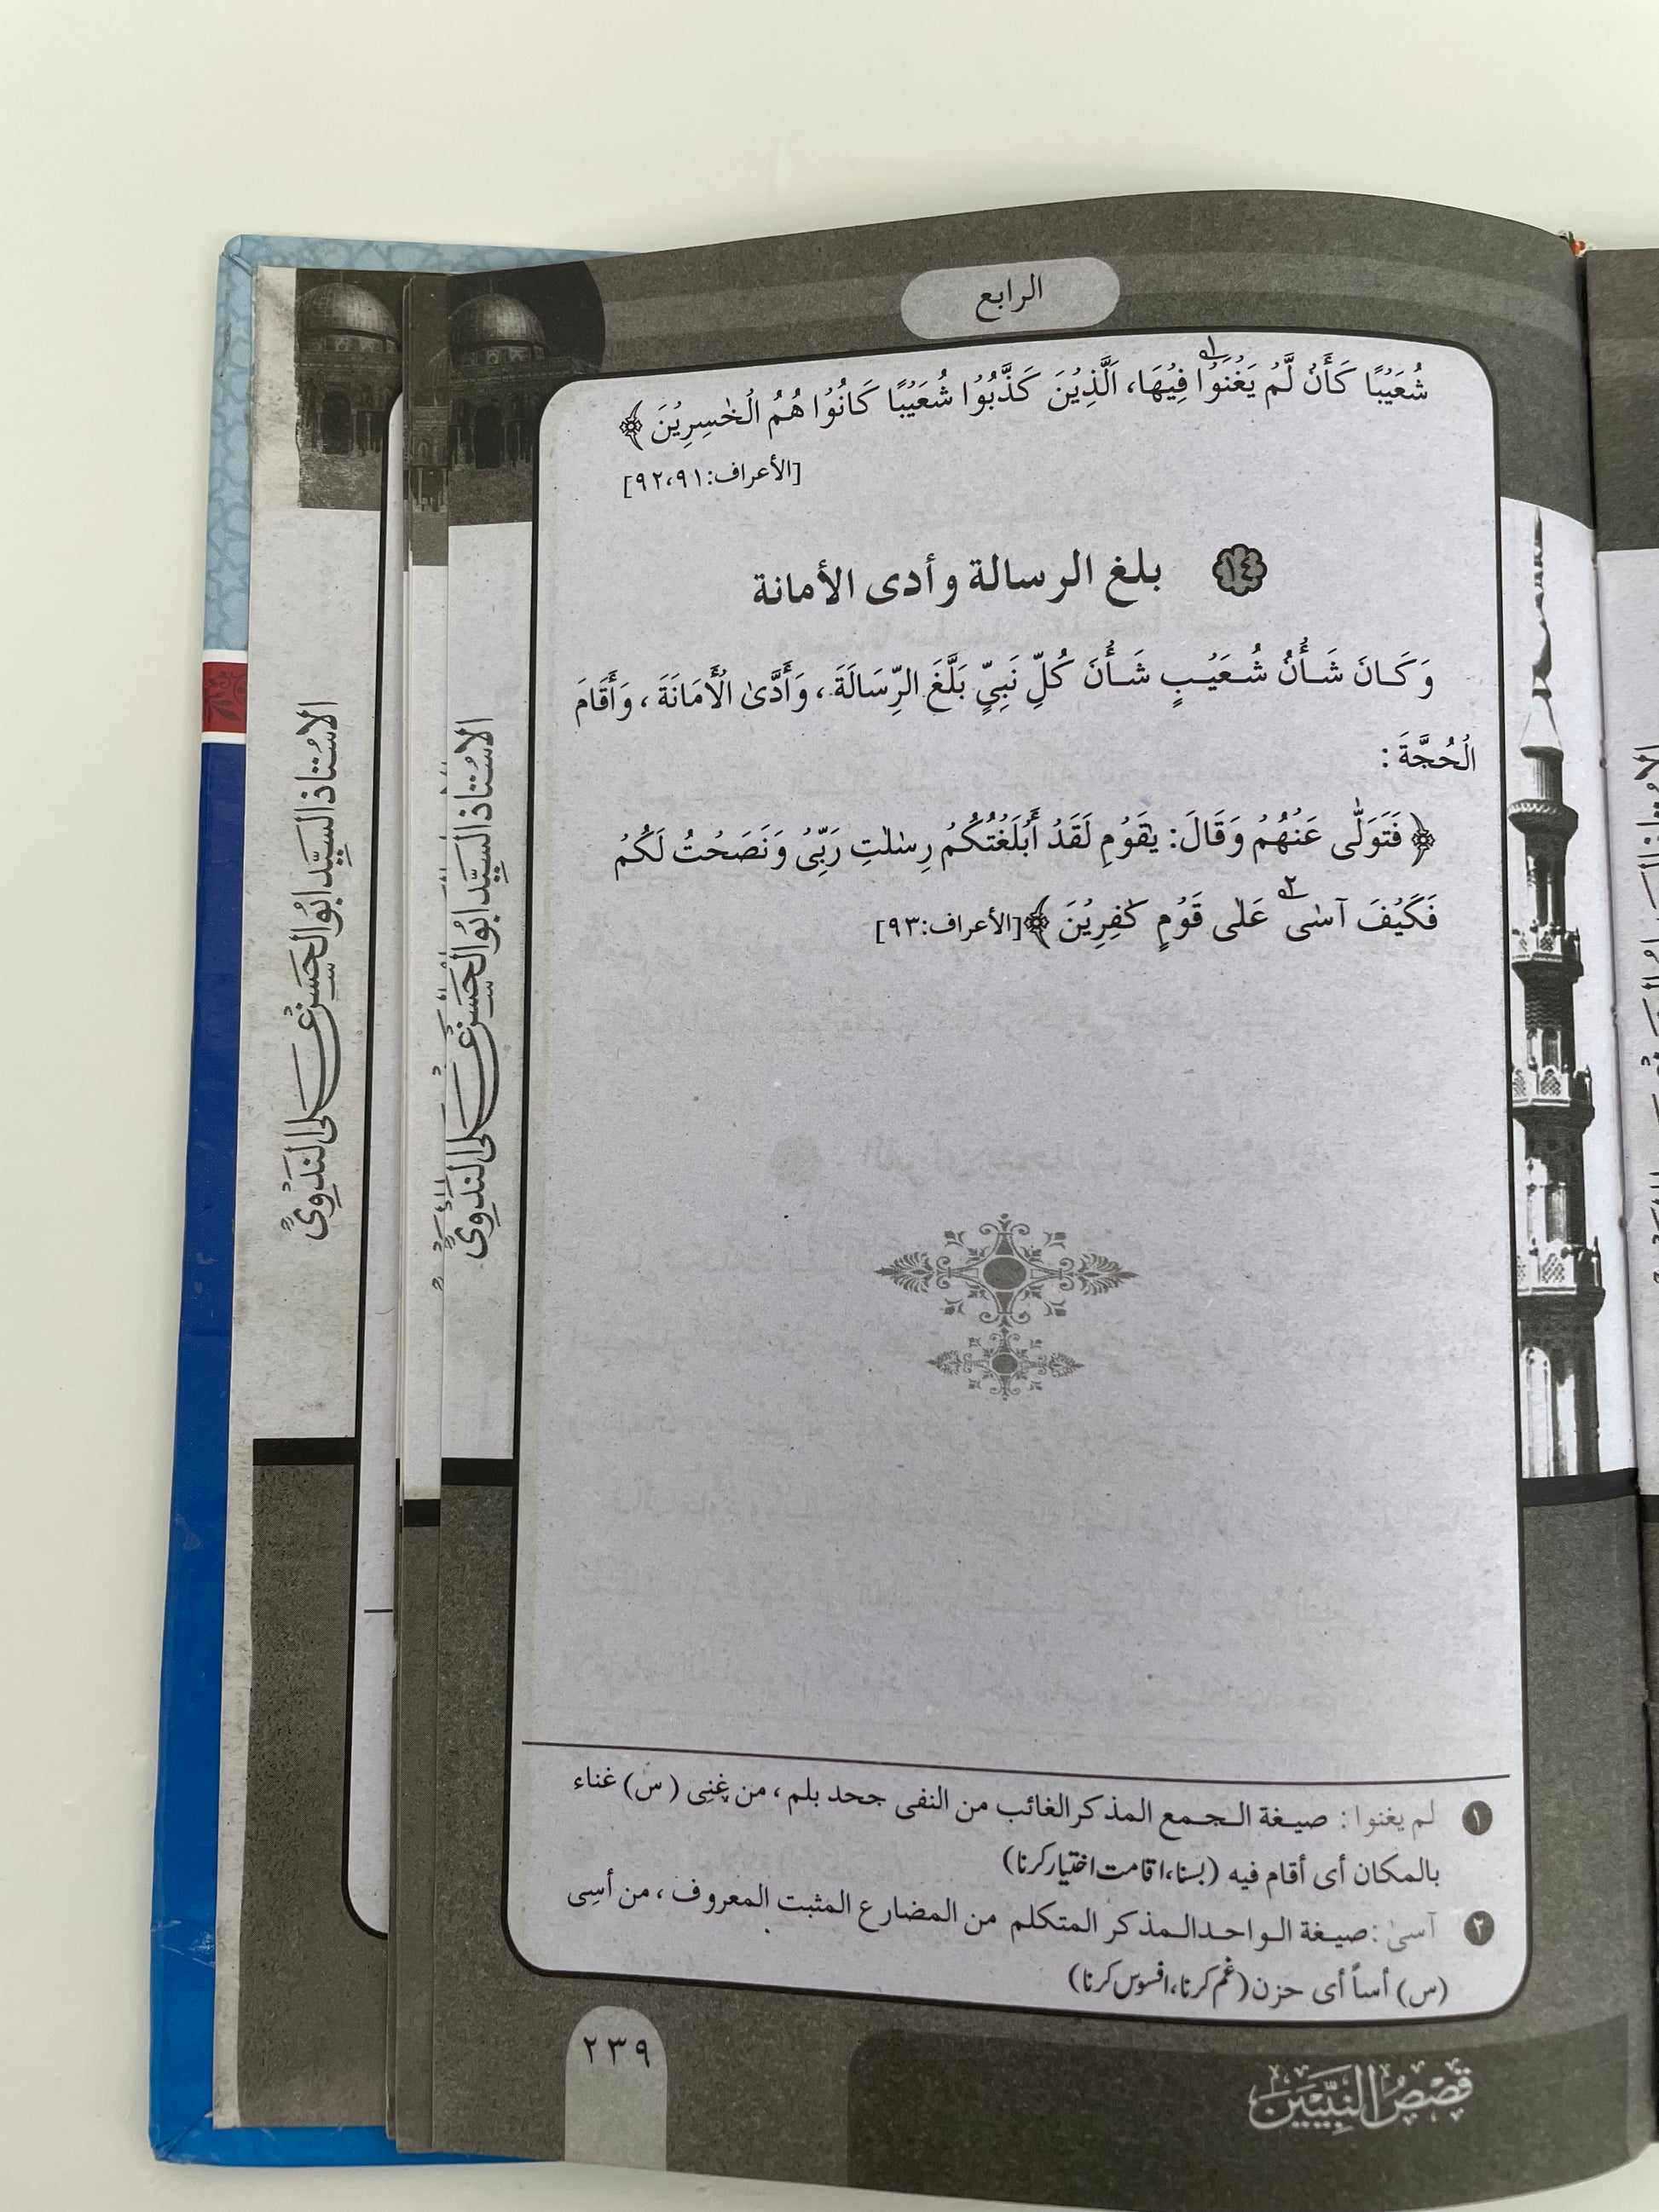 الرابع
شُعَيْبًا كَأَنْ لَّمْ يَغْنَوْا١ فِيْهَا، اَلَّذِيْنَ كَذَّبُوْا شُعَيْبًا كَانُوْا هُمُ الْخٰسِرِيْنَ ﴾
[الأعراف:٩٢،٩١]
١٤ بلغ الرسالة وأدى الأمانة
وَكَانَ شَأْنُ شُعَيْبٍ شَأْنَ كُلِّ نَبِيٍّ بَلَّغَ الرِّسَالَةَ، وَأَدَّىٰ الْأَمَانَةَ، وَأَقَامَ
الْحُجَّةَ:
﴿ فَتَوَلّٰى عَنْهُمْ وَقَالَ: يٰقَوْمِ لَقَدْ أَبْلَغْتُكُمْ رِسٰلٰتِ رَبِّيْ وَنَصَحْتُ لَكُمْ
فَكَيْفَ آسٰى٢ عَلٰى قَوْمٍ كٰفِرِيْنَ ﴾[الأعراف:٩٣]
١ لم يغنوا: صيغة الجمع المذكر الغائب من النفى جحد بلم، من غنِى (س) غناء
بالمكان أى أقام فيه (بسنا، اقامت اختیار کرنا)
٢ آسىٰ: صيغة الواحد المذكر المتكلم من المضارع المثبت المعروف، من أسِى
(س) أساً أى حزن (غم کرنا، افسوس کرنا)
٢٣٩
قصص النبيين
الاستاذ السيد ابو الحسن على الندوى
الاستاذ السيد ابو الحسن على الندوى